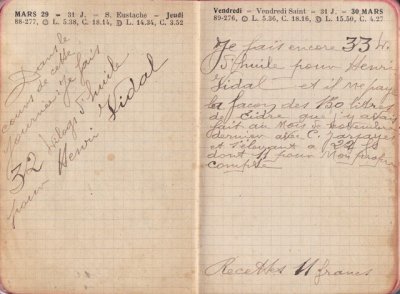 MARS 29 — 31 J. — S. Eustache — Jeudi
88-277, L. 5.38, C. 18.14, L. 14.34, C. 3.52
Dans le
cours de cette
journée je fais
32 kilogs d'huile
pour Henri Vidal
Vendredi — Vendredi Saint — 31 J. — 30 MARS
89-276, L. 5.36, C. 18.16, L. 15.50, C. 4.27
Je fais encore 33 k.
d'huile pour Henri
Vidal et il me paye
la façon des 150 litres
de cidre que j'y avais
fait au mois de novembre
dernier avec C.
et s'élevant à 22 fs
dont 11 pour mon propre
compte
Recettes 11 francs